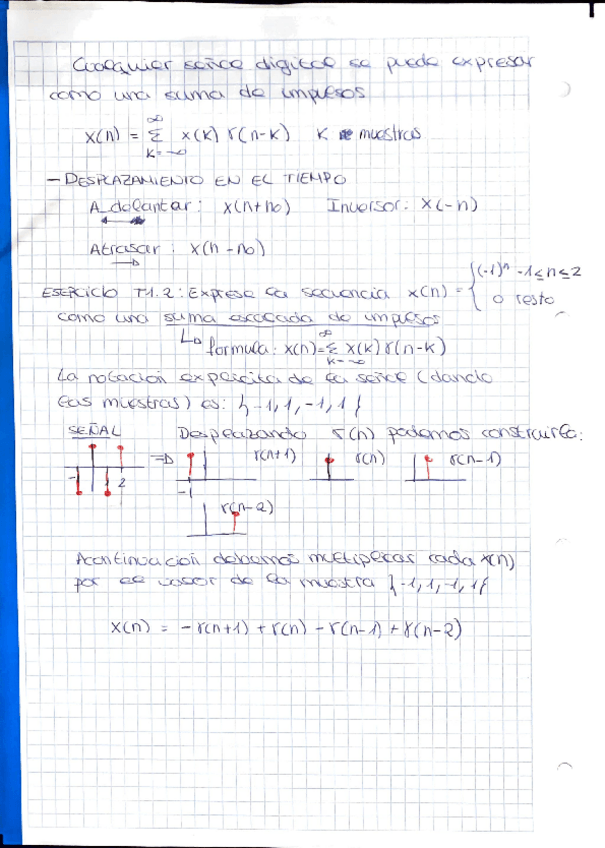 Cualquier señal digital se puede expresar
como una suma de impulsos
x(n) = ∑ x(k) δ(n-k)   k muestras
k=-∞   ∞
- DESPLAZAMIENTO EN EL TIEMPO
Adelantar: x(n+n0)   Inversor: x(-n)
Atrasar: x(n-n0)
EJERCICIO T1.2: Expresa la secuencia x(n) = { (-1)^n  -1≤n≤2
0 resto
como una suma escalada de impulsos
↳ formula: x(n)=∑ x(k) δ(n-k)
k=-∞   ∞
La notación explicita de la señal (dando
las muestras) es: {-1,1,-1,1}
SEÑAL   Desplazando δ(n) podemos construirla:
⇒   δ(n+1)   δ(n)   δ(n-1)
-1   2   -1
δ(n-2)
Acontinuación debemos multiplicar cada x(n)
por el valor de la muestra {-1,1,-1,1}
x(n) = -δ(n+1) + δ(n) - δ(n-1) + δ(n-2)